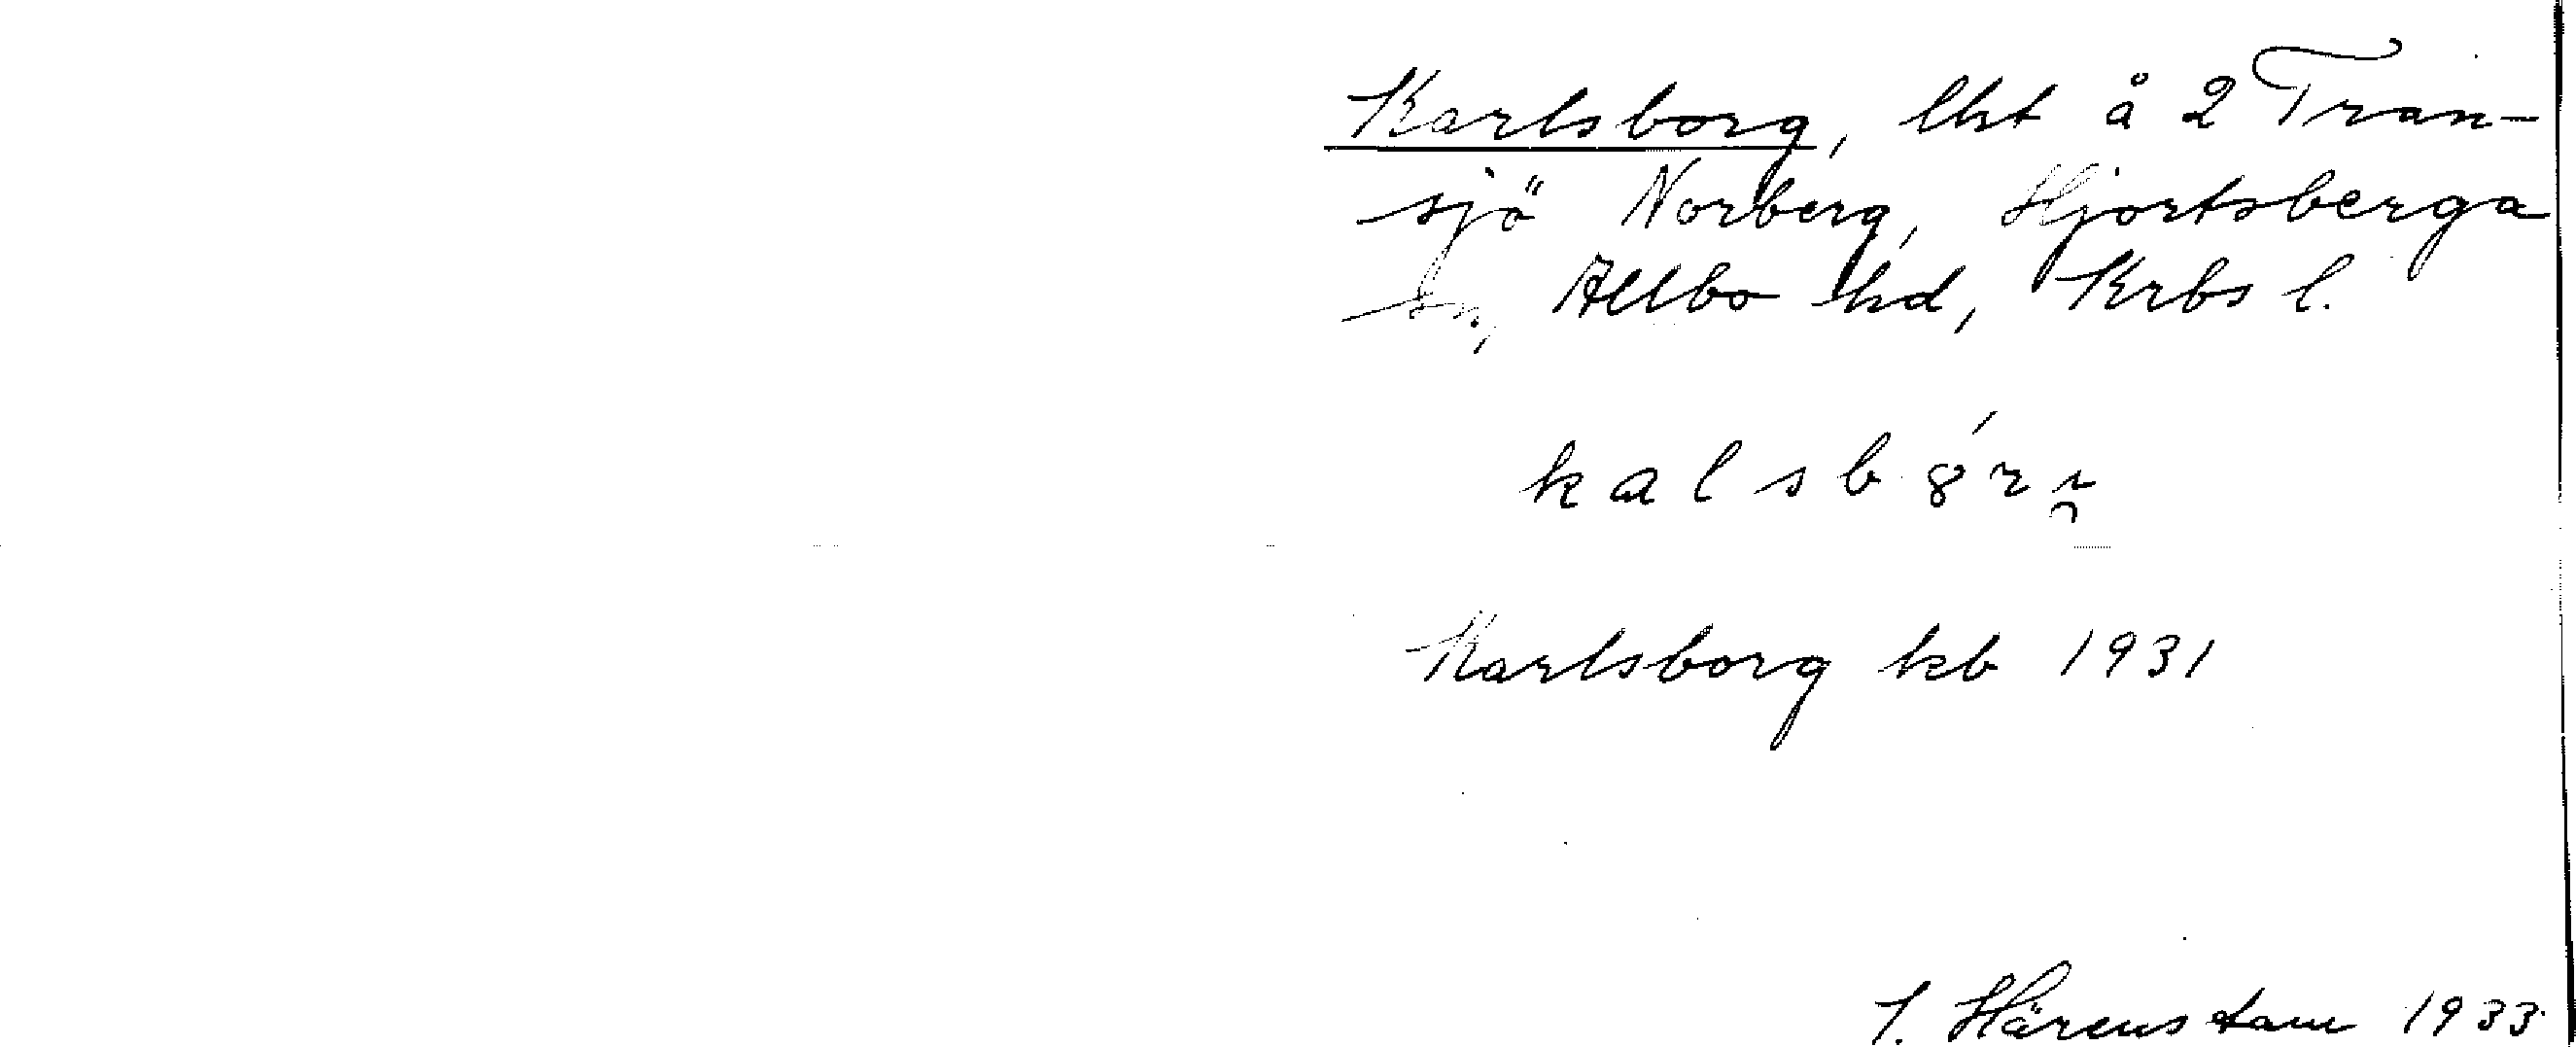 Karlsborg, lht å 2 Tran-
sjö Norberg, Hjortsberga
sn, Allbo hd, Krbs l.
Karlsborg kb 1931
Härenstam 1933